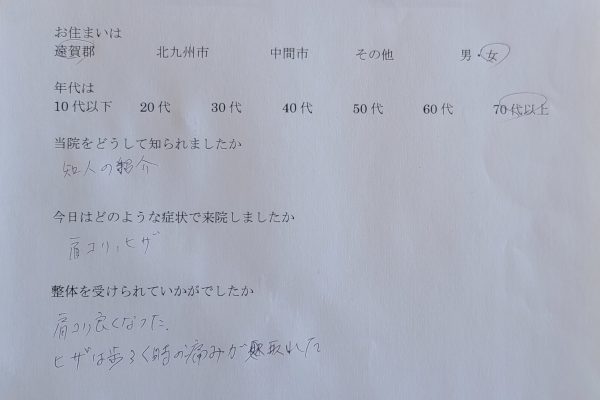 お住まいは
遠賀郡 北九州市 中間市 その他 男・女
年代は
10代以下 20代 30代 40代 50代 60代 70代以上
当院をどうして知られましたか
知人の紹介
今日はどのような症状で来院しましたか
肩コリ、ヒザ
整体を受けられていかがでしたか
肩コリ良くなった、
ヒザは歩く時の痛みが取れた